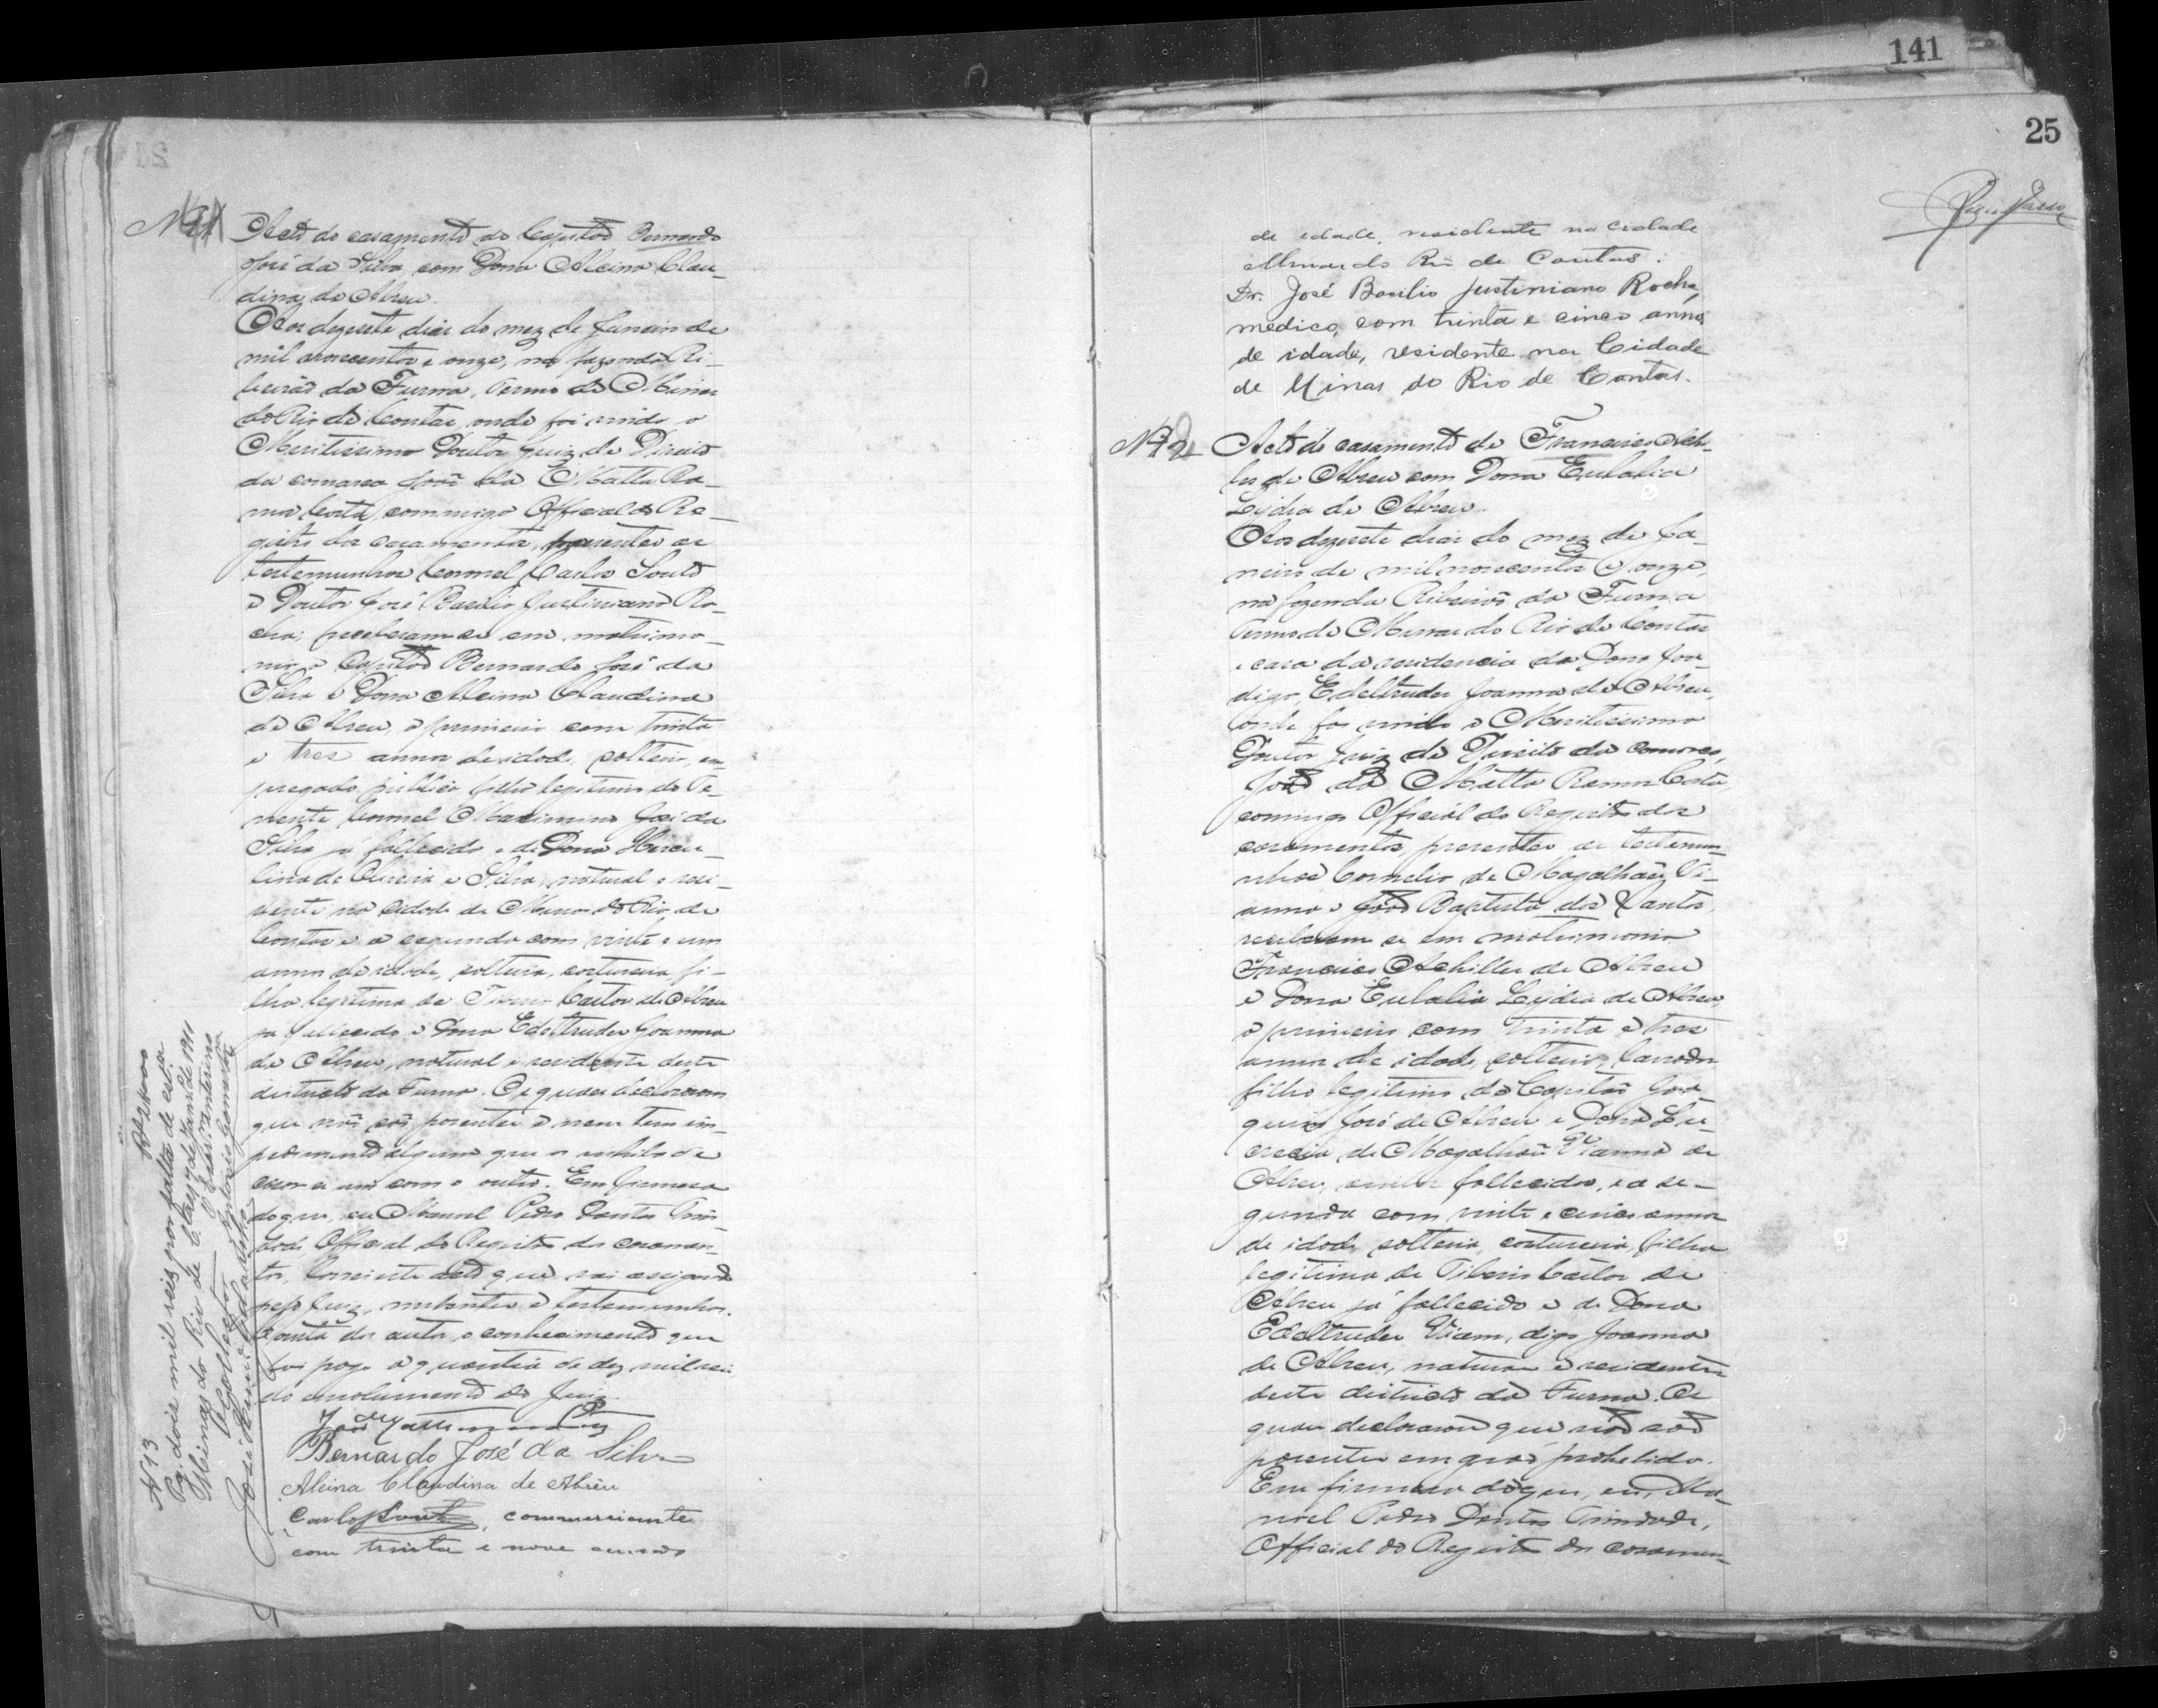 Acto do casamento do Capitão Bernardo
José da Silva, com Dona Alcina Clau-
dina de Abreu.
Aos dezesete dias do mez de Janeiro de
mil novecentos e onze, na fazenda Ri-
beirão da Furna, termo de Minas
do Rio de Contas, onde foi vindo o
Meritissimo Doutor Juiz de Direito
da comarca João da Matta Ra-
mos Costa, commigo Official do Re-
gistro dos casamentos, presentes as
testemunhas Coronel Carlos Souto
e Doutor José Basilio Justiniano Ro-
cha; receberam-se em matrimo-
nio o Capitão Bernardo José da
Silva e Dona Alcina Claudina
de Abreu, o primeiro com trinta
e tres annos de idade, solteiro, em-
pregado publico, filho legitimo do Te-
nente Coronel Maximino José da
Silva já fallecido e de Dona Hercu-
lina de Oliveira e Silva, natural e resi-
dente na cidade de Minas do Rio de
Contas e a segunda com vinte e um
annos de idade, solteira, costureira, fi-
lha legitima de Castor de Abreu
já fallecido e Dona Edeltrudes Joanna
de Abreu, natural e residente deste
districto da Furna. Os quaes declararam
que não são parentes e nem tem im-
pedimento algum que os inhiba de
casar-se um com o outro. Em firmesa
do que, eu Manoel Pedro Dantas Trin-
dade Official do Registro dos casamen-
tos, lavrei este acto que vai assignado
pelo Juiz, nubentes e testemunhas.
Consta dos autos o conhecimento que
foi pago a quantia de dez mil reis
do emolumento do Juiz.
Bernardo José da Silva
Alcina Claudina de Abreu
Carlos Souto, commerciante
com trinta e nove annos
N 13 Rs 2$000
Pg. dois mil reis por falta de est.a
Minas do Rio de C.tas, 17 de Janr.o de 1911
O Collector O Escr.am interino
141
25
de edade, residente na cidade
Minas do Rio de Contas.
Dr. José Basilio Justiniano Rocha,
medico, com trinta e cinco annos
de idade, residente na Cidade
de Minas do Rio de Contas.
Nº 2 Acto do casamento de Francisco Achil-
les de Abreu com Dona Eulalia
Lydia de Abreu.
Aos dezesete dias do mez de Ja-
neiro de mil novecentos e onze,
na fazenda Ribeirão da Furna
termo de Minas do Rio de Contas
e casa da residencia da Dona Joa-
digo, Edeltrudes Joanna de Abreu,
onde foi vindo o Meritissimo
Doutor Juiz de Direito da comarca,
João da Matta Ramos Costa
commigo Official do Registro dos
casamentos, presentes as testemu-
nhas Cornelio de Magalhães Vi-
anna e João Baptista dos Santos,
receberam-se em matrimonio
Francisco Achilles de Abreu
e Dona Eulalia Lydia de Abreu,
o primeiro com trinta e tres
annos de idade, solteiro, lavrador
filho legitimo do Capitão Joa-
quim José de Abreu e Dona Lu-
crecia de Magalhães Vianna de
Abreu, ambos fallecidos, e a se-
gunda com vinte e cinco annos
de idade, solteira, costureira, filha
legitima de Tiberio Castor de
Abreu já fallecido e de Dona
Edeltrudes Viam, digo Joanna
de Abreu, naturaes e residentes
deste districto da Furna. Os
quaes declararam que não são
parentes em gráo prohibido.
Em firmeza do que, eu, Ma-
noel Pedro Dantas Trindade,
Official do Registro dos casamen-